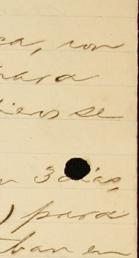 ca, con
para
se
3 dias,
) para
ban en